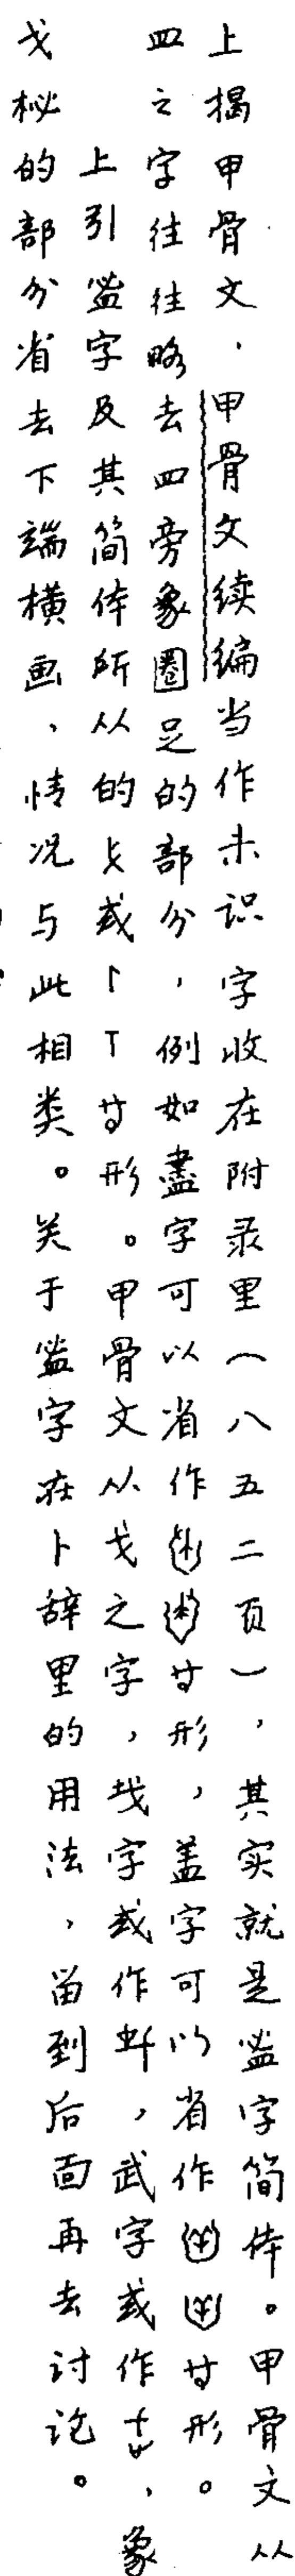 上揭甲骨文，甲骨文续编当作未识字收在附录里（八五二页），其实就是𥁑字简体。甲骨文从
皿之字往往略去皿旁象圈足的部分，例如盡字可以省作等形，盖字可以省作等形。
上引𥁑字及其简体所从的或等形。甲骨文从戈之字，字或作，武字或作，象
戈柲的部分省去下端横画，情况与此相类。关于𥁑字在卜辞里的用法，留到后面再去讨论。